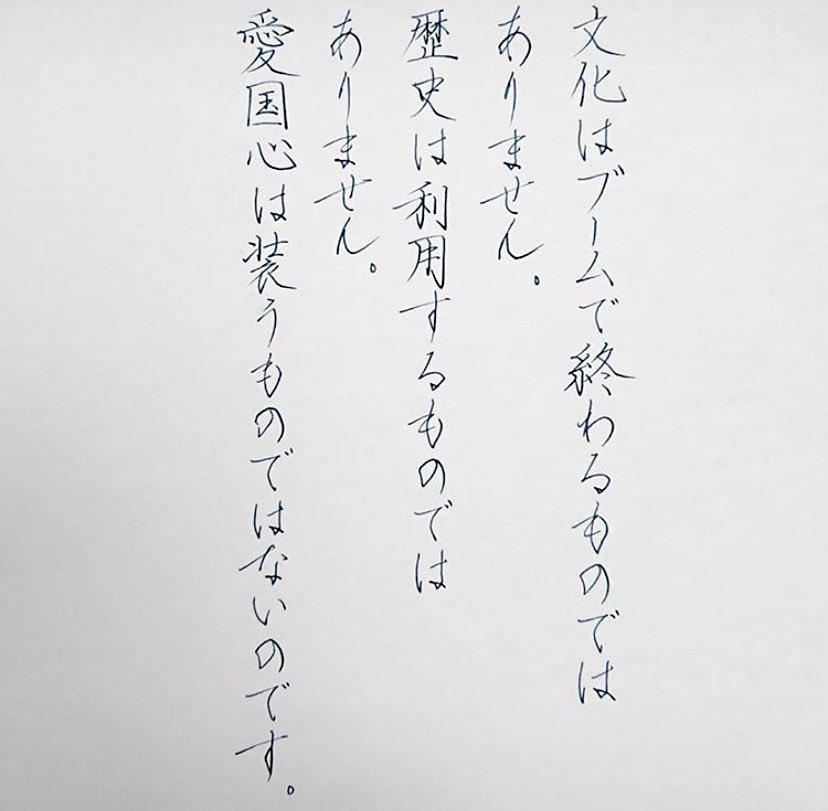 文化はブームで終わるものでは
ありません。
歴史は利用するものでは
ありません。
愛国心は装うものではないのです。